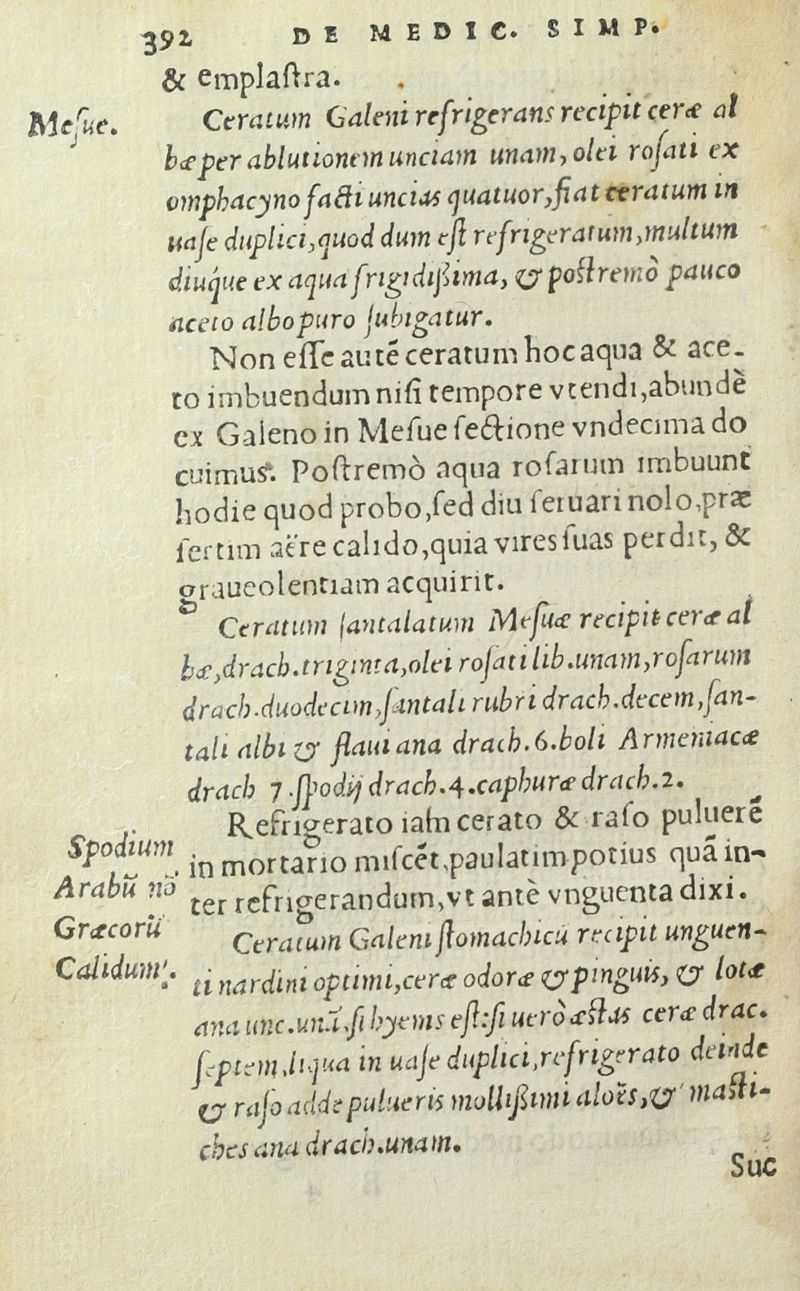 392 DE MEDIC. SIMP.
& emplaſtra.
Meſue.
Ceratum Galeni refrigerans recipit ceræ al
bæ per ablutionem unciam unam, olei roſati ex
omphacyno facti uncias quatuor, fiat ceratum in
uaſe duplici, quod dum eſt refrigeratum, multum
diuq́ue ex aqua frigidiſsima, & poſtremò pauco
aceto albo puro ſubigatur.
Non eſſe autē ceratum hoc aqua & ace-
to imbuendum niſi tempore vtendi, abundè
ex Galeno in Meſue ſectione vndecima do
cuimus. Poſtremò aqua roſarum imbuunt
hodie quod probo, ſed diu ſeruari nolo, præ
ſertim aëre calido, quia vires ſuas perdit, &
graueolentiam acquirit.
Ceratum ſantalatum Meſuæ recipit ceræ al
bæ, drach. triginta, olei roſati lib. unam, roſarum
drach. duodecim, ſantali rubri drach. decem, ſan-
tali albi & flaui ana drach. 6. boli Armeniacæ
drach 7. ſpodij drach. 4. caphuræ drach. 2.
Refrigerato iam cerato & raſo puluerē
in mortario miſcēt, paulatim potius quā in-
ter refrigerandum, vt antè vnguenta dixi.
Spodium
Arabū nō
Græcorū
Calidum.
Ceratum Galeni ſtomachicū recipit unguen-
ti nardini optimi, ceræ odoræ & pinguis, & lotæ
ana unc. unā, ſi hyems eſt: ſi uerò æſtas ceræ drac.
ſeptem, liqua in uaſe duplici, refrigerato deinde
& raſo adde pulueris molliſsimi aloës, & maſti-
ches ana drach. unam.
Suc